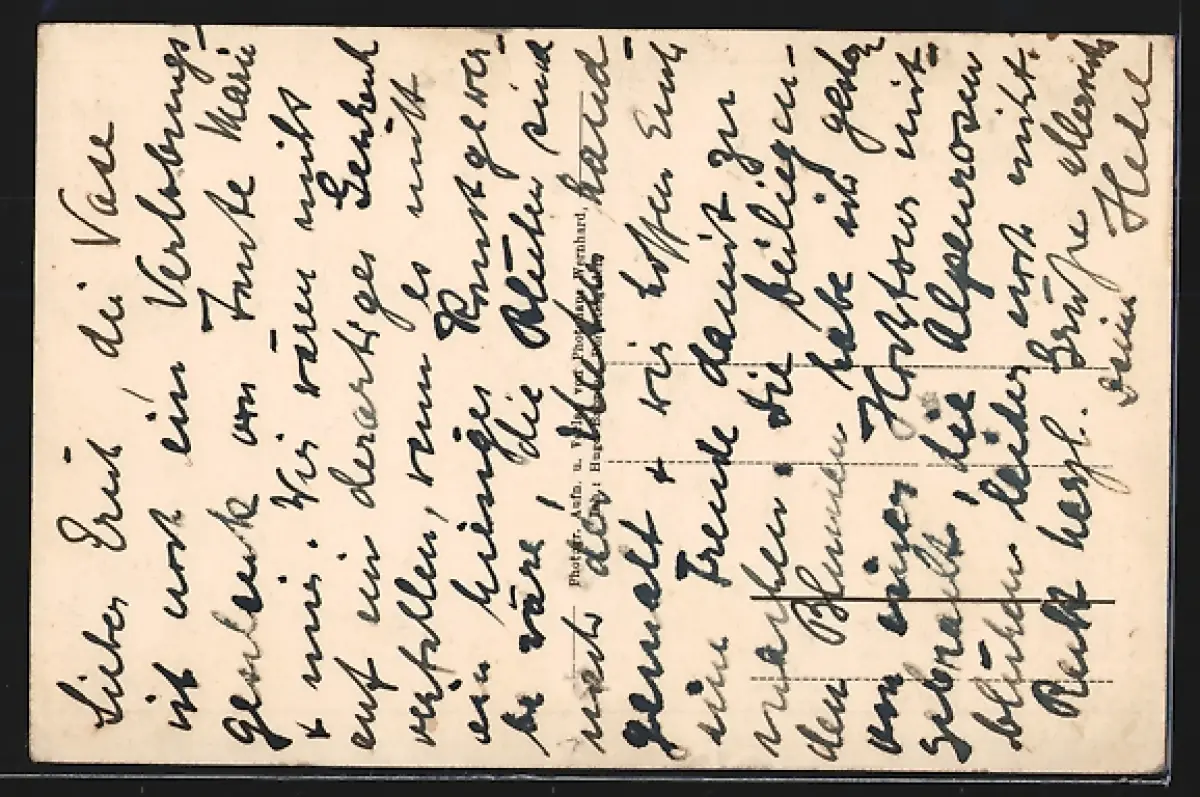 Lieber Ernst, die Vase
ist noch ein Verlobungs-
geschenk von Tante Marie
+ mir. Wir wären nicht
auf ein derartiges Geschenk
verfallen, wenn es nicht
ein hiesiges Kunstgewer-
be wäre, die Blüten sind
nach der Natur hand-
gemalt + wir hoffen Euch
eine Freude damit zu
machen. Die beiliegen-
den Blumen habe ich gestern
von einer Hochtour mit-
gebracht, die Alpenrosen
blühen leider noch nicht.
Recht herzl. Grüße allerseits
Deine Hede
Photogr. Aufn. u. Verlag von Photohaus Wernhard,